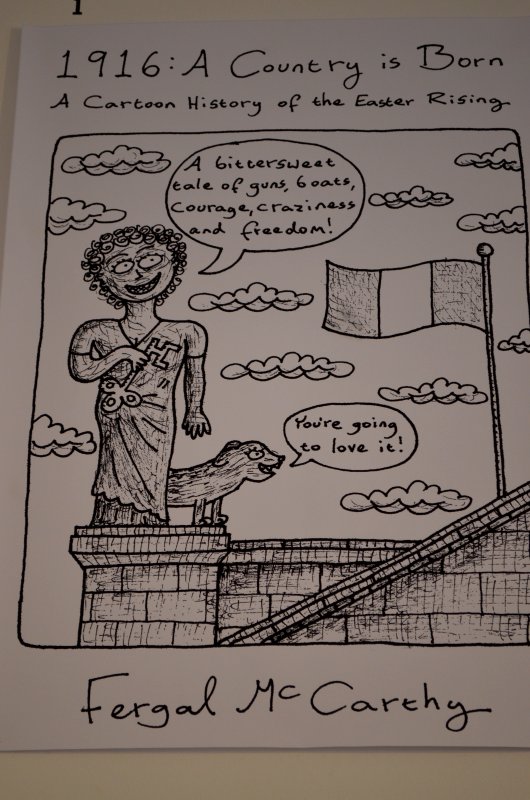 1
1916: A Country is Born
A Cartoon History of the Easter Rising
A bittersweet
tale of guns, boats,
courage, craziness
and freedom!
You're going
to love it!
Fergal McCarthy